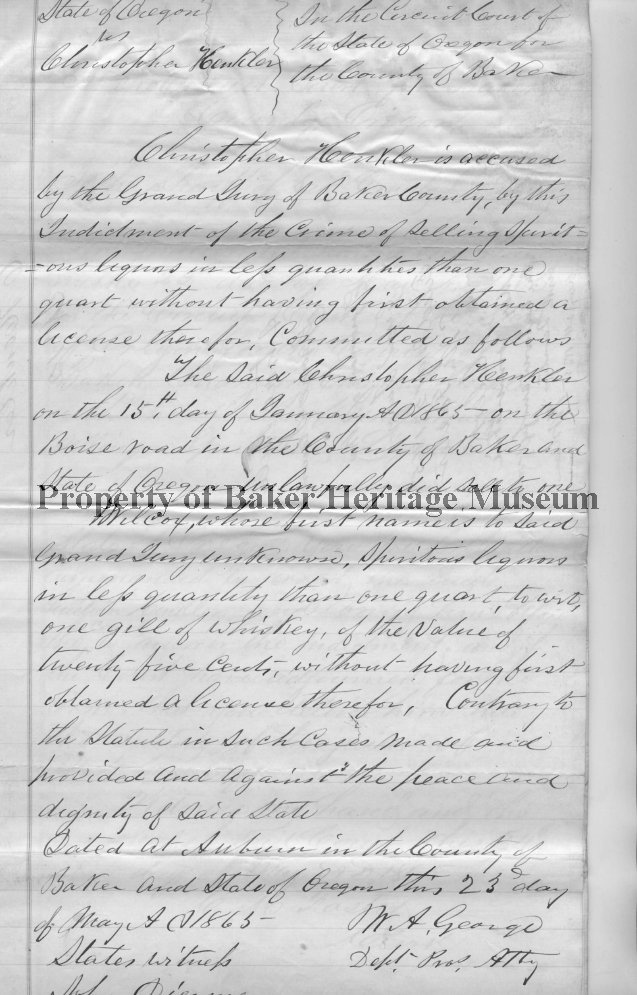 State of Oregon
vs
Christopher Henkler
In the Circuit Court of
the State of Oregon for
the County of Baker
Christopher Henkler is accused
by the Grand Jury of Baker County, by this
Indictment of the Crime of selling Spirit=
=ous liquors in less quantities than one
quart without having first obtained a
license therefor, Committed as follows
The Said Christopher Henkler
on the 15th day of January AD 1865 - on the
Boise road in the County of Baker and
State of Oregon unlawfully did sell to one
Property of Baker Heritage Museum
Wilcox, whose first name is to said
Grand Jury unknown, Spiritous liquors
in less quantity than one quart, to wit,
one gill of whiskey, of the value of
twenty five cents, without having first
obtained a license therefor, Contrary to
the Statute in such Cases made and
provided and against the peace and
dignity of said State
Dated at Auburn in the County of
Baker and State of Oregon this 23d day
of May AD 1865 -
W. A. George
Dept. Pros. Atty
States witness